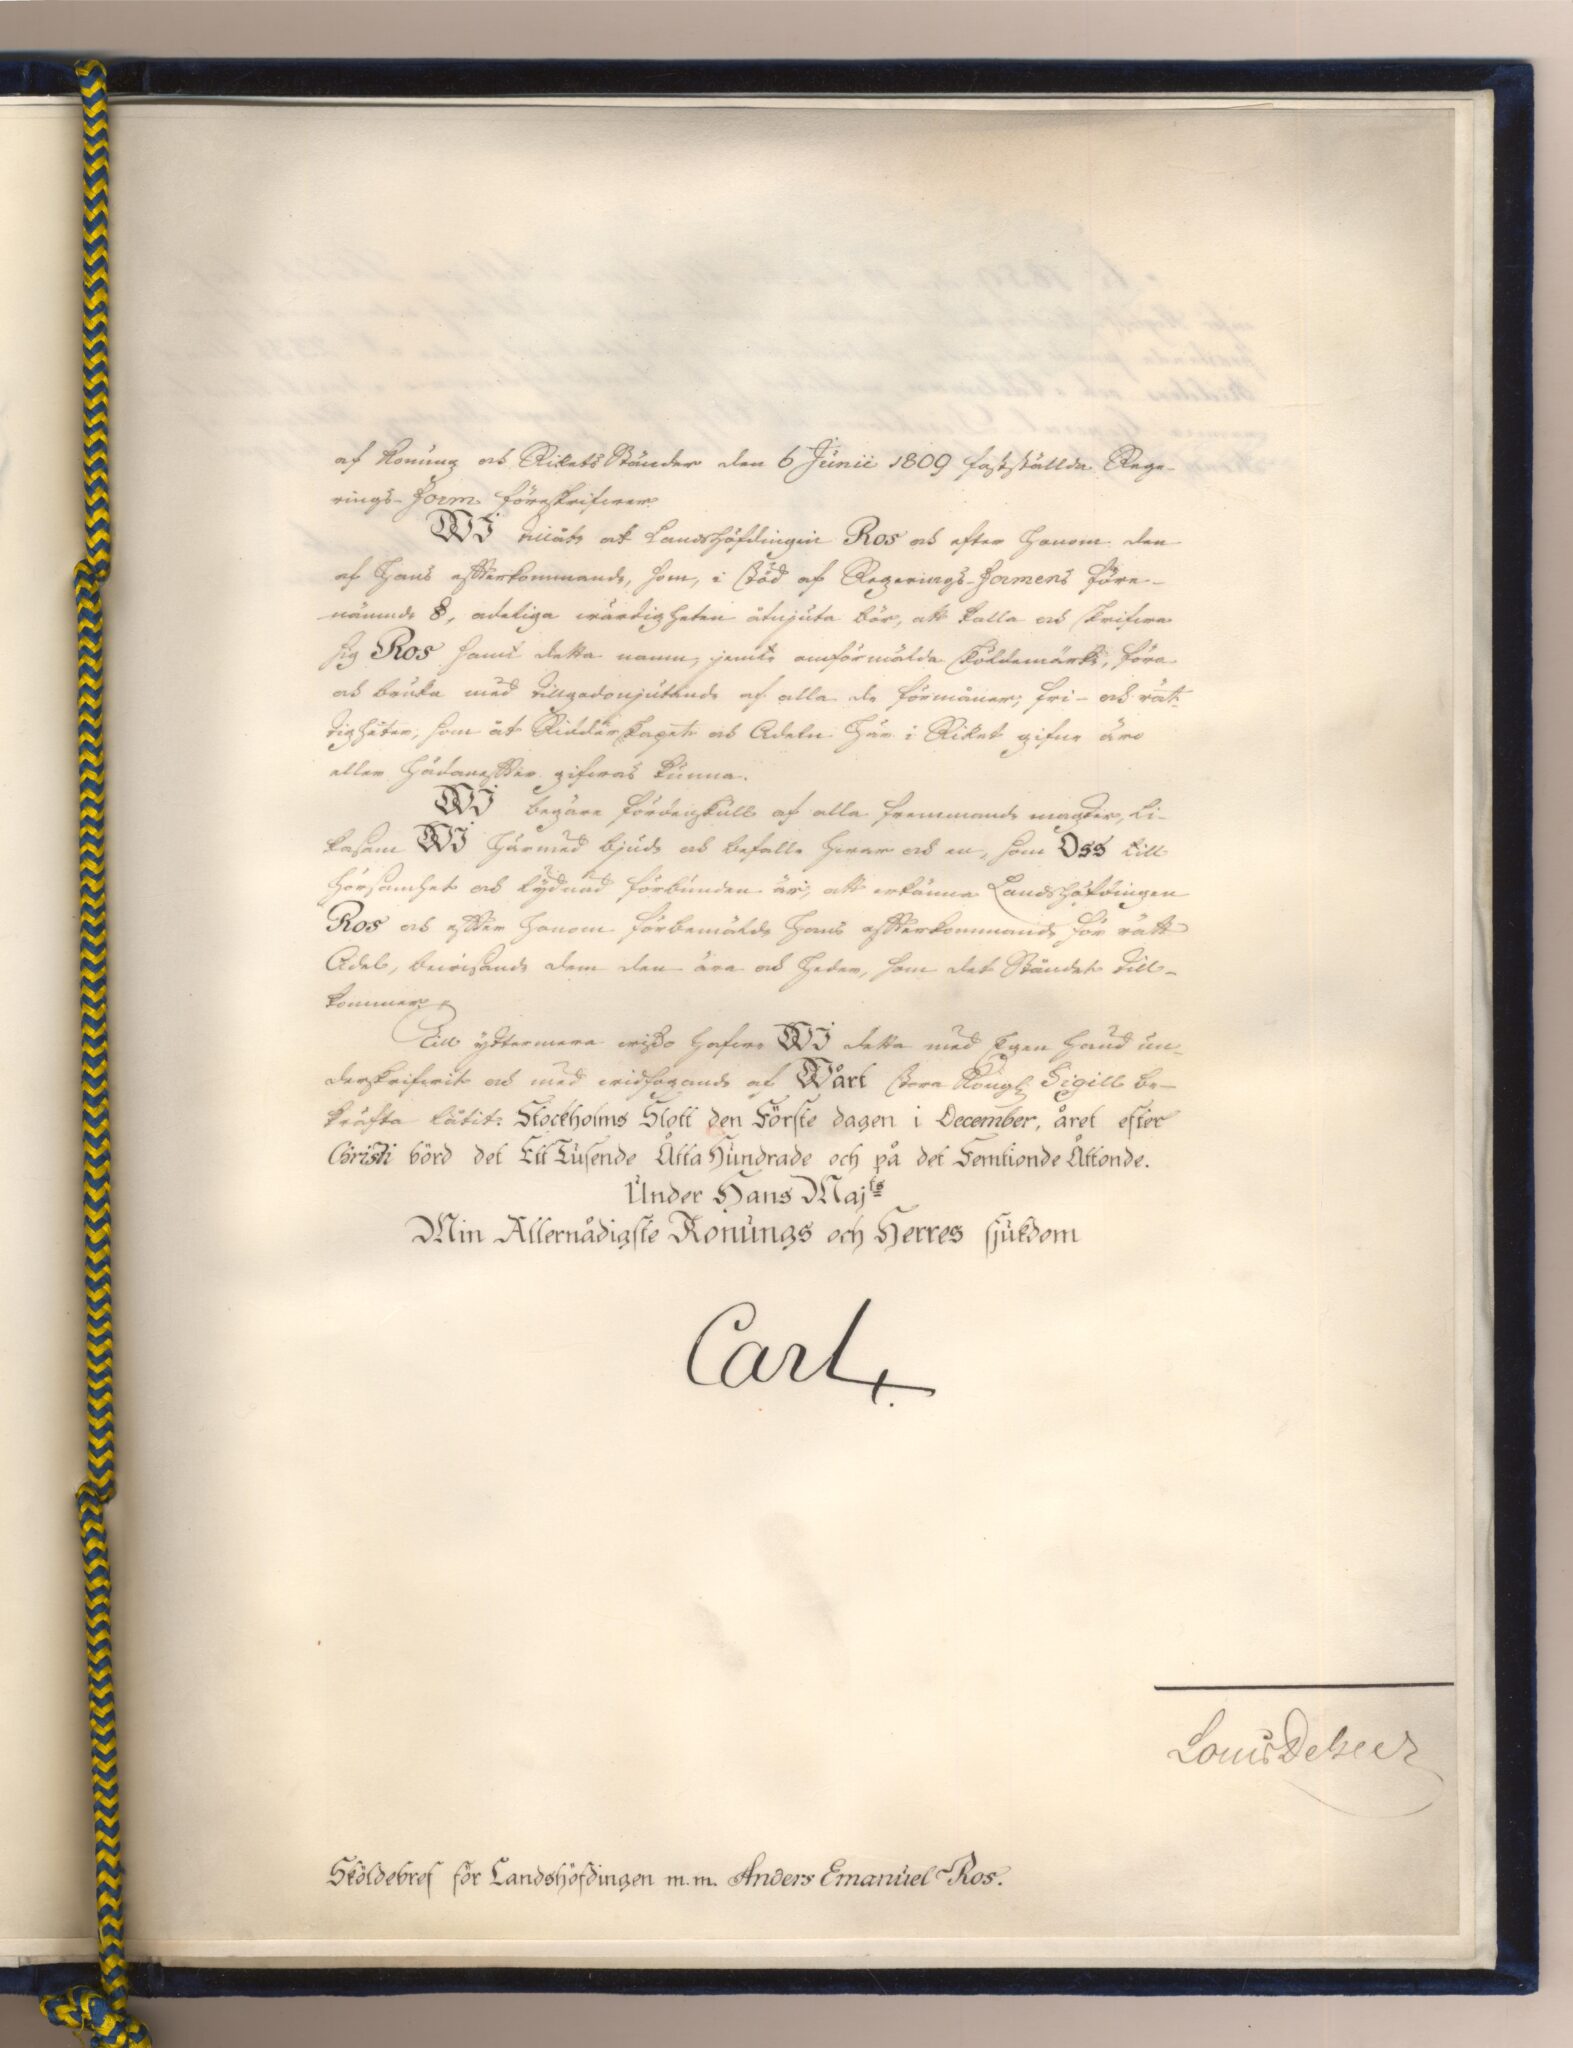 af Konung och Rikets Ständer den 6 Junii 1809 fastställda Rege-
rings-Form föreskrifver.
WI tillåte att Landshöfdingen Ros och efter honom den
af Hans efterkommande, som, i stöd af Regerings-Formens före-
nämnde §, adeliga wärdigheten åtnjuta bör, att kalla och skrifwa
sig Ros samt detta namn, jemte omförmälda Sköldemärke, föra
och bruka med tillgodonjutande af alla de förmåner, fri- och rät-
tigheter, som åt Ridderskapet och Adeln här i Riket gifne äro
eller hädanefter gifwas kunna.
WI begäre fördenskull af alla fremmande magter, li-
kasom WI härmed bjude och befalle hwar och en, som Oss till
hörsamhet och lydnad förbunden är, att erkänna Landshöfdingen
Ros och efter honom förbemälde hans efterkommande för rätt
Adel, bewisande dem den ära och heder, som det Ståndet till-
kommer.
Till yttermera wisso hafwe WI detta med Egen hand un-
derskrifwit och med widfogande af Wårt stora Kongl. Sigill be-
kräfta låtit: Stockholms Slott den Förste dagen i December, året efter
Christi börd det Ett Tusende Åtta Hundrade och på det Femtionde Åttonde.
Under Hans Maj:ts
Min Allernådigste Konungs och Herres sjukdom
Carl.
Louis De Geer
Sköldebref för Landshöfdingen m.m. Anders Emanuel Ros.